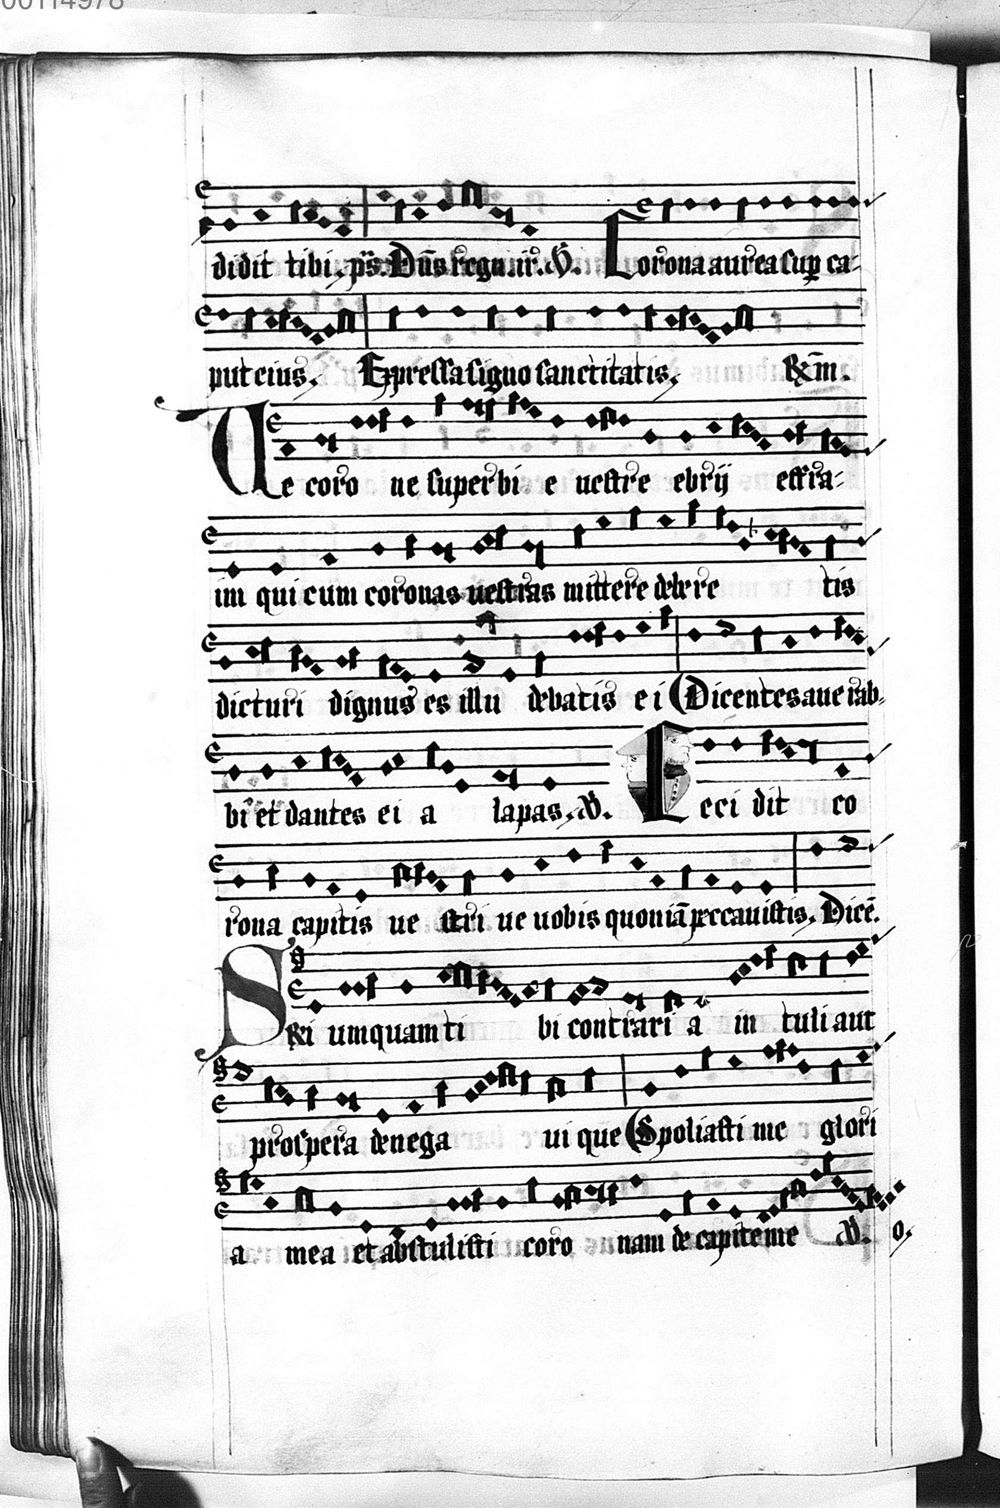 00114978
didit tibi. p̄s. Dn̄s regn. ir. V. Corona aurea sup ca-
put eius. Expressa signo sanctitatis.
Ue coro ne superbi e uestre ebrij effra-
im qui cum coronas uestras mittere debere tis
dicturi dignus es illu debatis e i Dicentes aue rab-
bi et dantes ei a lapas. V. Ceci dit co
rona capitis ue stri ue uobis quoniā peccauistis. Dicē.
S umquam ti bi contrari a in tuli aut
prospera denega ui que Spoliasti me glori
a mea et abstulisti coro nam de capite me V. o.